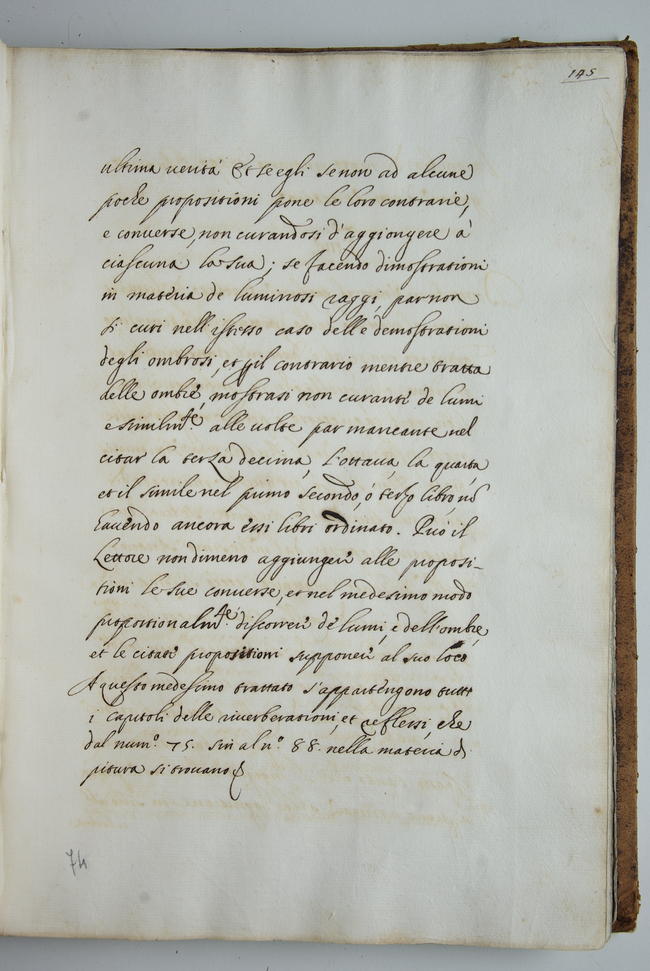 145
ultima uerità Et se egli se non ad alcune
poche propositioni pone le loro contrarie,
e conuerse, non curandosi d'aggiongere à
ciascuna la sua; se facendo dimostrationi
in materia de luminosi raggi, par non
si curi nell'istesso caso delle demostrationi
degli ombrosi, et p il contrario mentre tratta
delle ombre, mostrasi non curante de lumi
e similmte. alle uolte par mancante nel
citar la terza decima, l'ottaua, la quarta
et il simile nel primo secondo, ò terzo libro, nõ
hauendo ancora essi libri ordinato. Può il
Lettore nondimeno aggiungere alle proposi-
tioni le sue conuerse, et nel medesimo modo
proportionalmte. discorrere de lumi, e dell'ombre,
et le citate propositioni supponere al suo loco
A questo medesimo trattato s'appartengono tutti
i capitoli delle riuerberationi, et reflessi, che
dal numo. 75. sin al no. 88. nella materia di
pitura si trouano
74